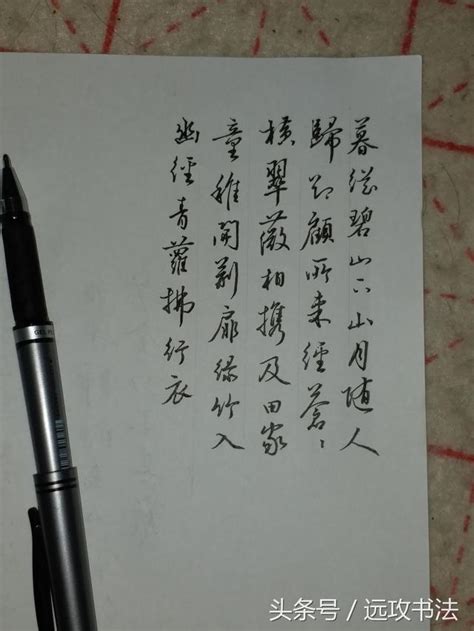 暮從碧山下山月随人
歸却顧所来經蒼々
橫翠薇相携及田家
童稚開荊扉綠竹入
幽經青蘿拂行衣
头条号 / 远攻书法